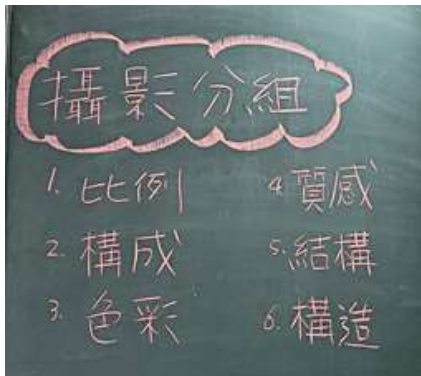 攝影分組
1. 比例
2. 構成
3. 色彩
4. 質感
5. 結構
6. 構造